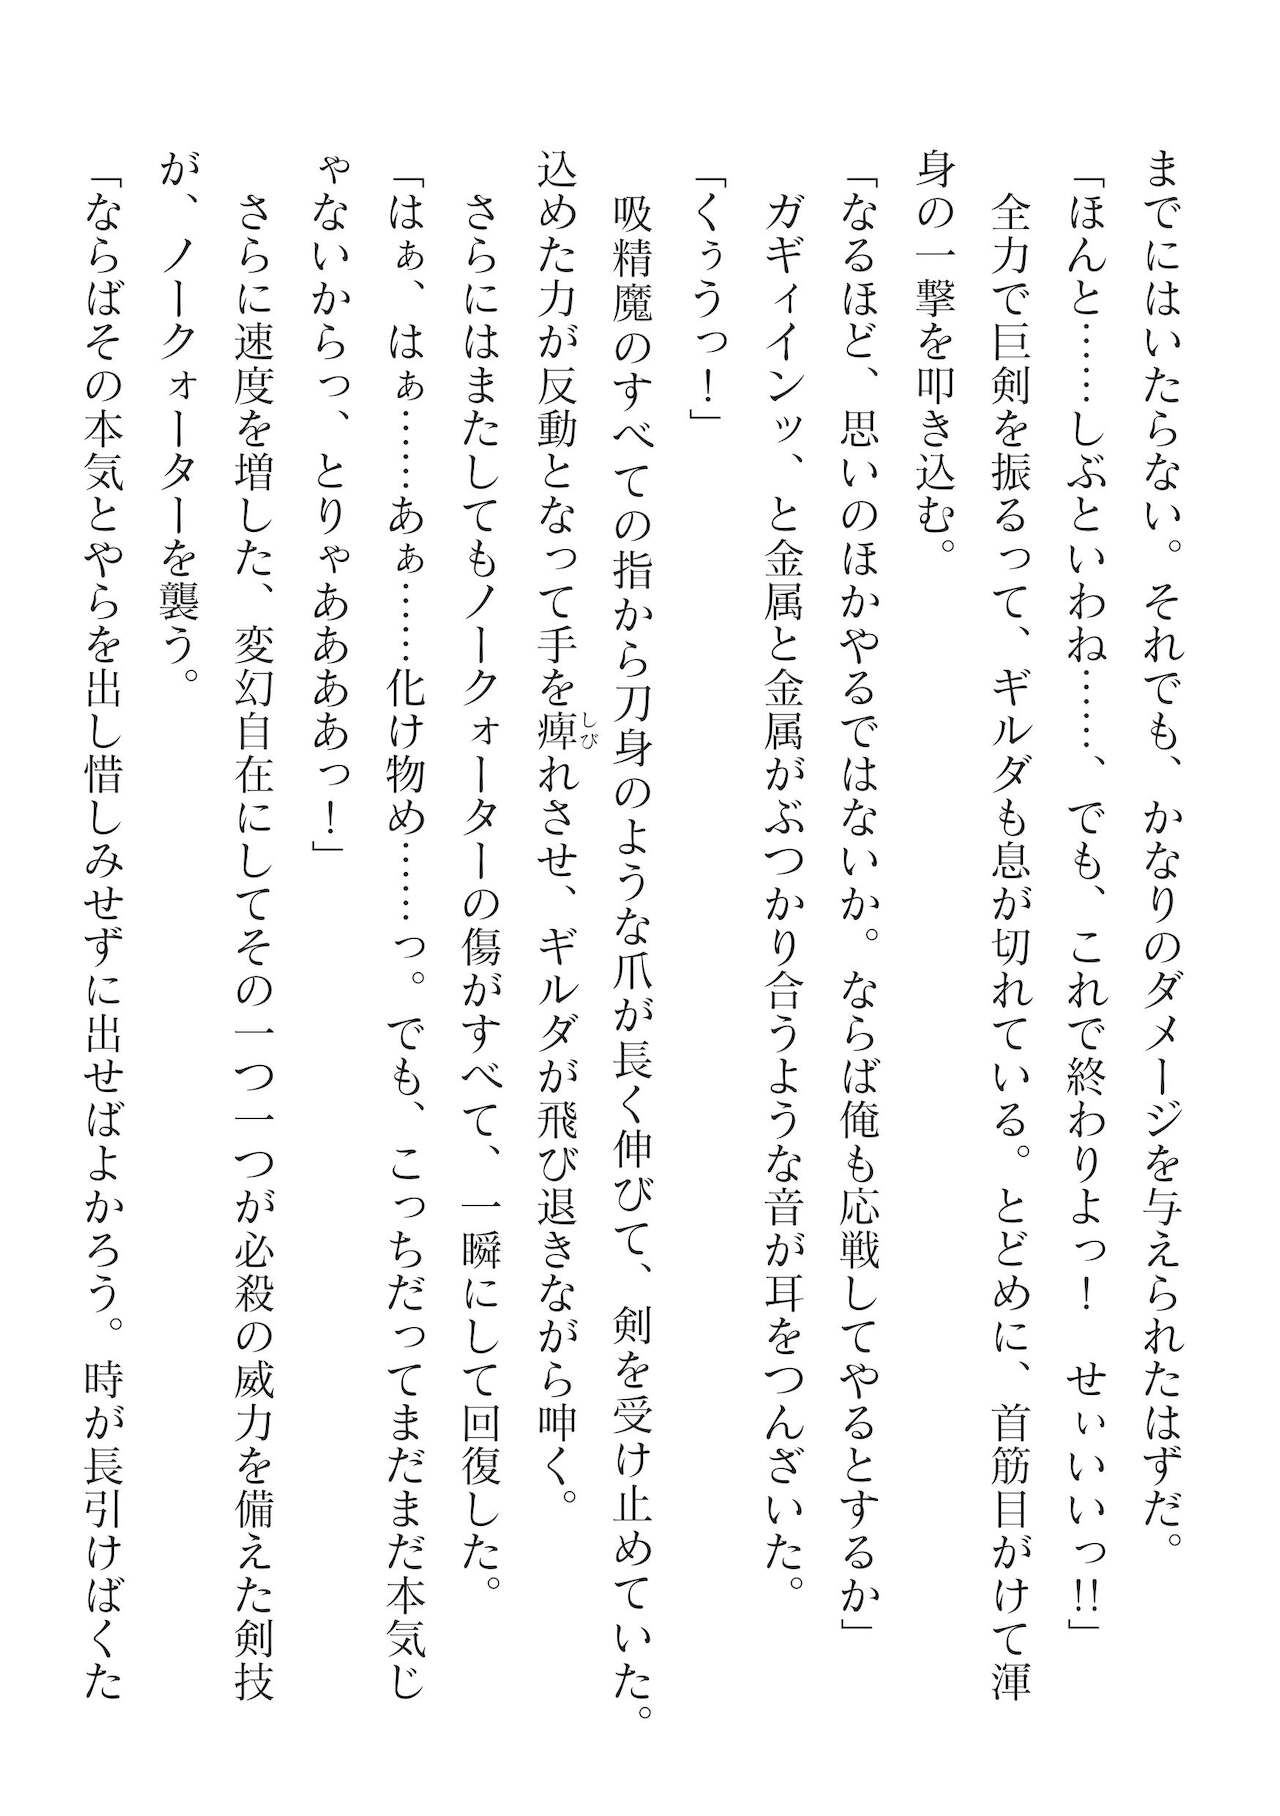 までにはいたらない。それでも、かなりのダメージを与えられたはずだ。
「ほんと……しぶといわね……、でも、これで終わりよっ！　せぃいいっ!!」
　全力で巨剣を振るって、ギルダも息が切れている。とどめに、首筋目がけて渾
身の一撃を叩き込む。
「なるほど、思いのほかやるではないか。ならば俺も応戦してやるとするか」
　ガギィインッ、と金属と金属がぶつかり合うような音が耳をつんざいた。
「くぅうっ！」
　吸精魔のすべての指から刀身のような爪が長く伸びて、剣を受け止めていた。
込めた力が反動となって手を痺れさせ、ギルダが飛び退きながら呻く。
しび
　さらにはまたしてもノークォーターの傷がすべて、一瞬にして回復した。
「はぁ、はぁ……あぁ……化け物め……っ。でも、こっちだってまだまだ本気じ
ゃないからっ、とりゃああああっ！」
　さらに速度を増した、変幻自在にしてその一つ一つが必殺の威力を備えた剣技
が、ノークォーターを襲う。
「ならばその本気とやらを出し惜しみせずに出せばよかろう。時が長引けばくた